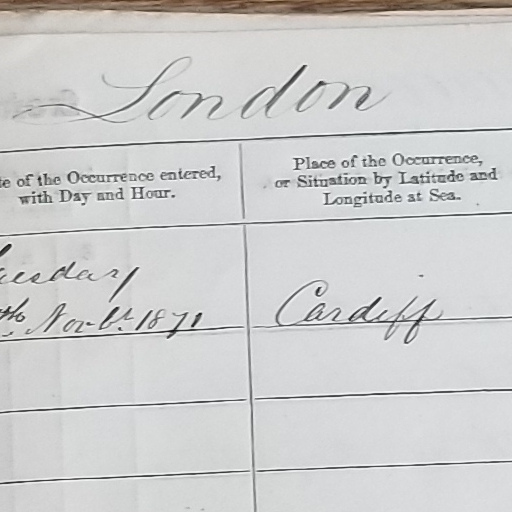 London
te of the Occurrence entered,
with Day and Hour.
Place of the Occurrence,
or Situation by Latitude and
Longitude at Sea.
uesday
th Novbr. 1871
Cardiff